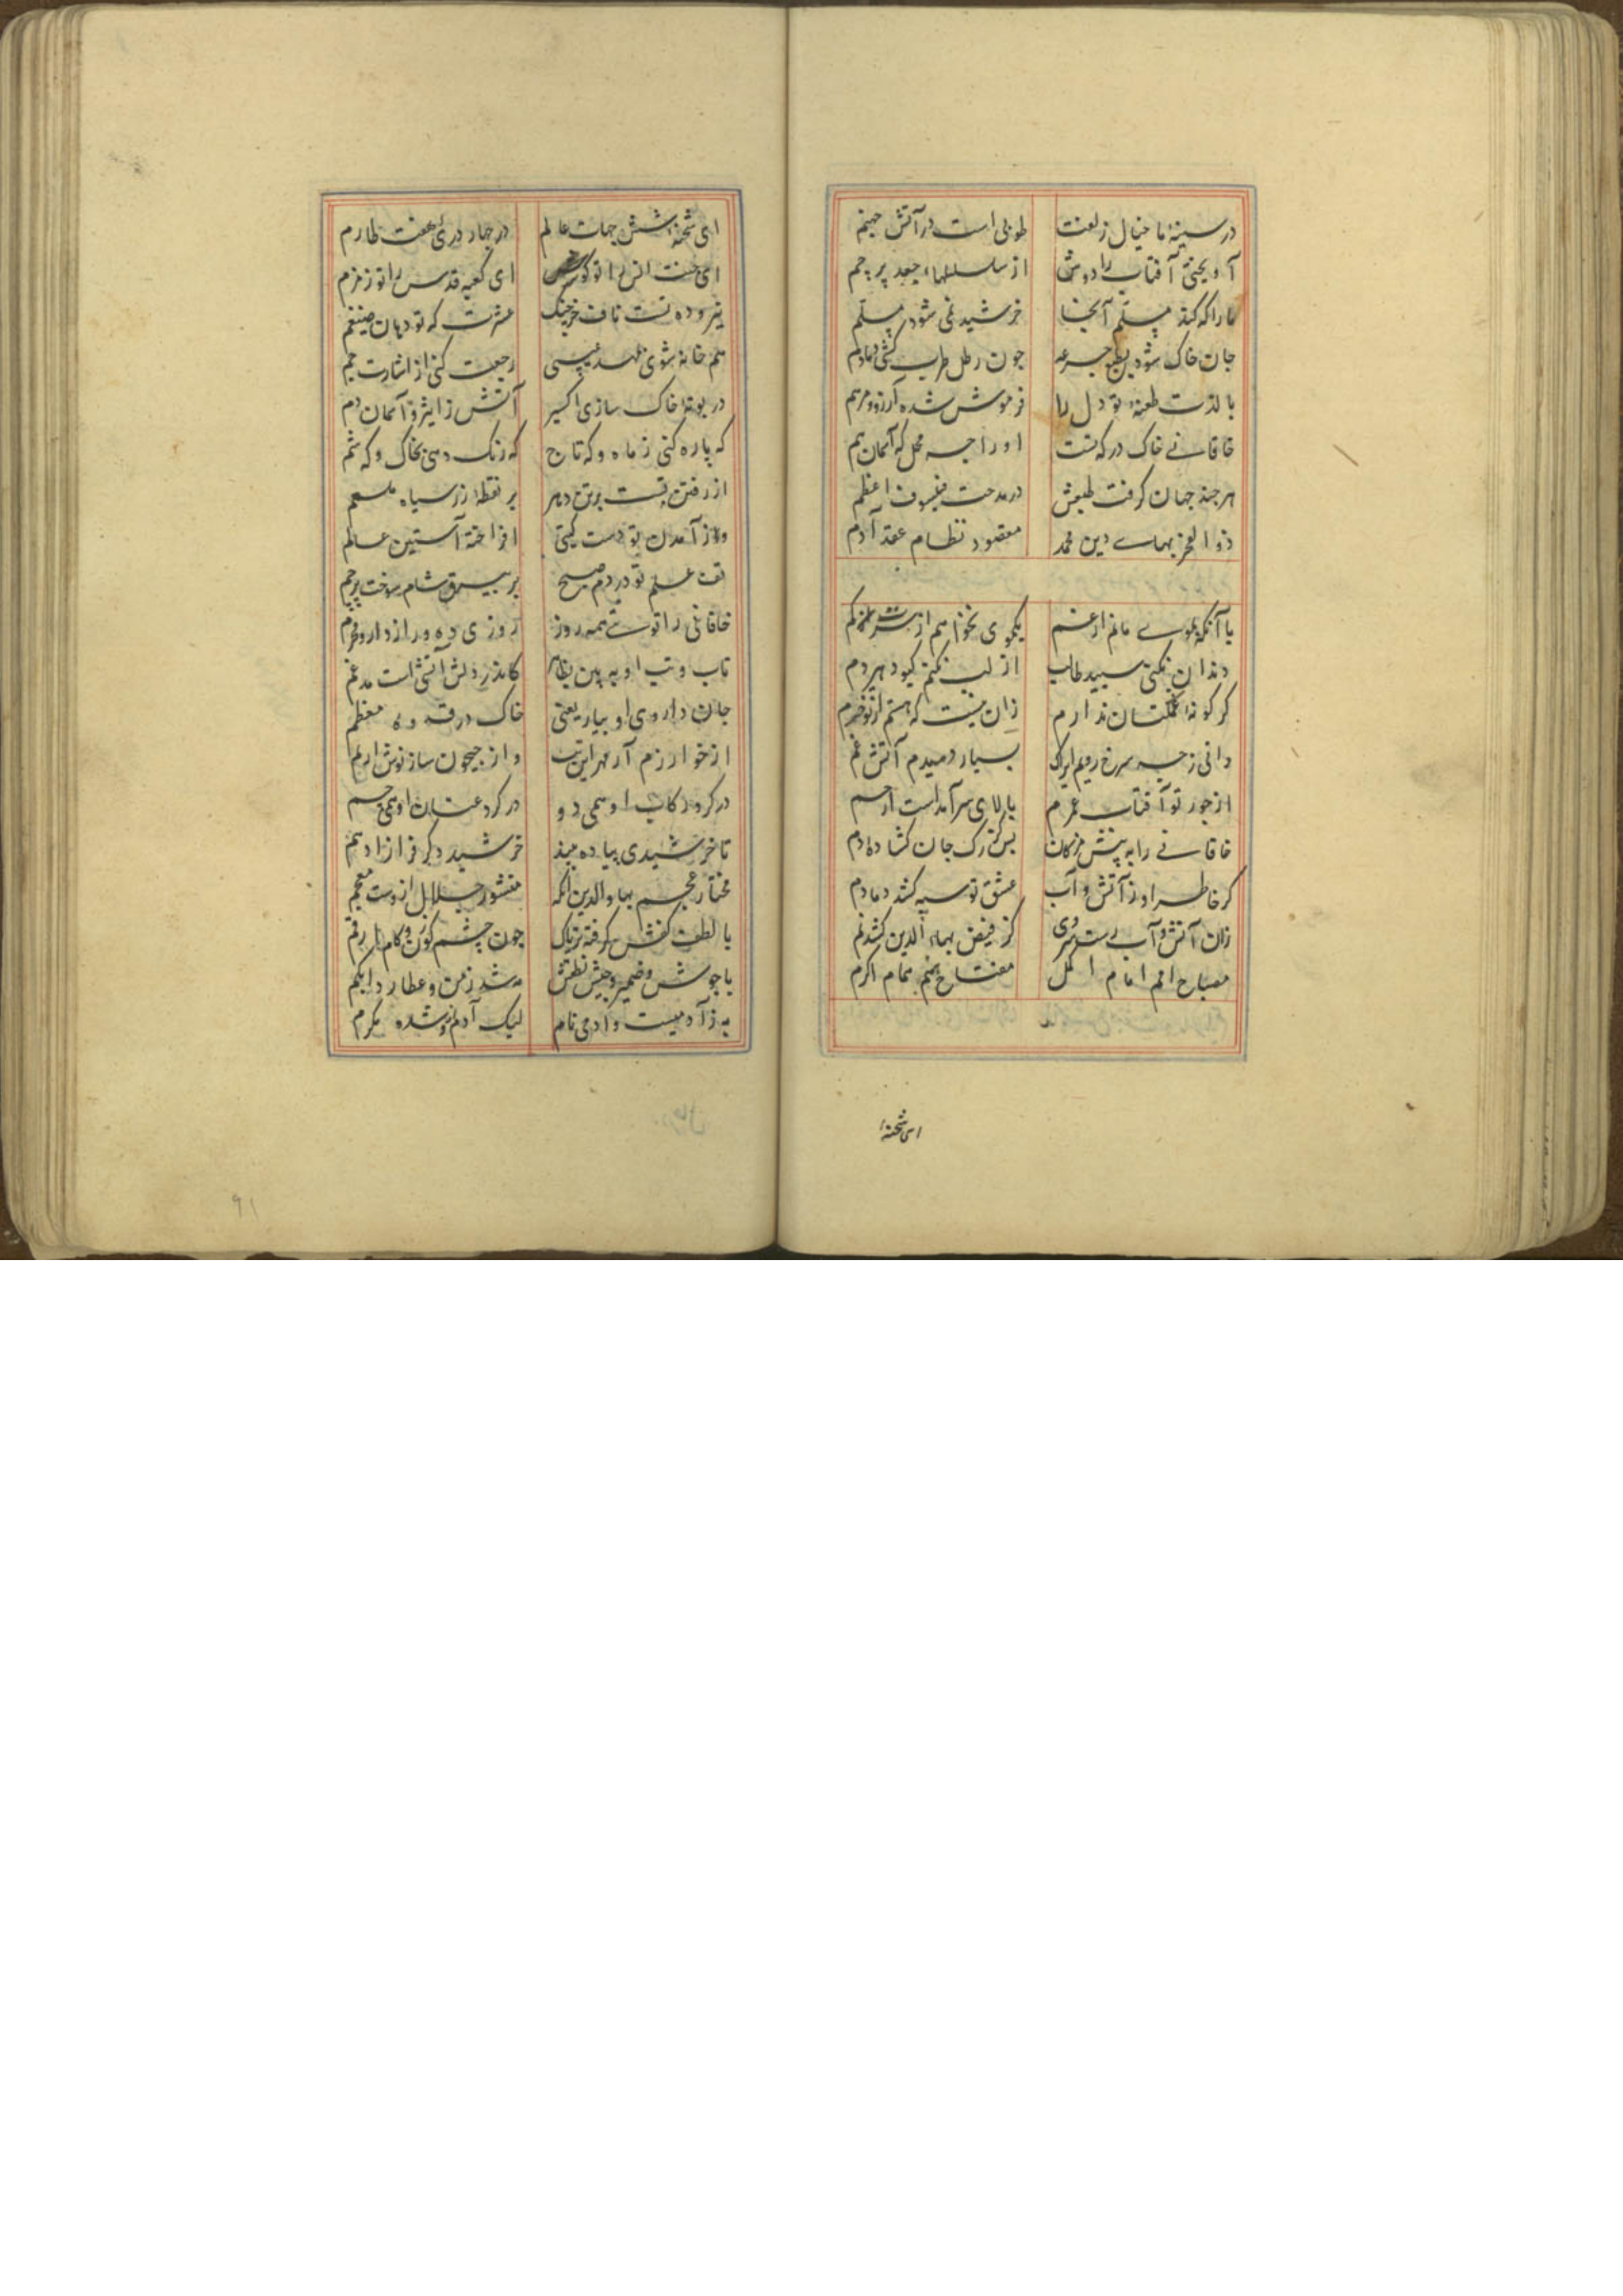 در سینهٔ ما خیال زلفت طوبی است در آتش جهنم
آویختی آفتاب را دوش از سلسلهاء جعد پر خم
ما را که کند مسلم آنجا خرشید نمی شود مسلم
جان خاک شود بطمع جرعه چون رطل طرب کشی دمادم
با لذت طعنهٔ تو دل را فرموش شده آرزوء مرهم
خاقانی خاک درکه تست او را چه محل که آسمان هم
هر چند جهان کرفت طبعش در مدحت فیلسوف اعظم
ذو الفخر بهاے دین محمد مقصود نظام عقد آدم
با آنکه بموے مانم از غم یکموی نخواهم از سرت کم
دندان نکنی سپید تا لب از تب نکنم کبود هر دم
کر کونهٔ نکنتان ندارم زان نیست که هستم از تو خرم
دانی ز چه سرخ رویم ایراک بسیار دمیدم آتش غم
از جور تو آفتاب عمرم بالای سر آمداست ارحم
خاقانی را به پیش مژکان بس کز رک جان کشاده دم
کر خاطر او ز آتش و آب عشق تو سپه کشد دمادم
زان آتش و آب رست سروی کز فیض بهاء الدین کشد نم
مصباح امم امام اکمل مفتاح همم همام اکرم
ای شحنهٔ
ای شحنهٔ شش جهات عالم در چهار دری هفت طارم
ای جنت انس را تو کوثر ای کعبه قدس را تو زمزم
نیرو ده تست ناف خرچنک عشرت که تو دهان ضیغم
هم خانه شوی مهد عیسی رجعت کنی از اشارت جم
در بوتهٔ خاک سازی اکسیر آتش ز اثیر و آسمان دم
که یاره کنی ز ماه و که تاج که رنک دهی بخاک و که شم
از رفتن تست برتن دهر بر نقطهٔ زر سیاه ملحم
وز آمدن تو دست کیتی افراخته آستین عالم
تف علم تو در دم صبح بر بیرق شام سوخت پرچم
خاقانی را توئے همه روز روزی ده و راز دار و محرم
تاب و تب او به بین بظاهر کاندر دلش آتشی است مدغم
جان داروی او بیار یعنی خاک در قدوهٔ معظم
از خوارزم آر مهر این تب و از جیحون ساز نوش این سم
در کرد رکاب او همی دو در کرد عنان او همی چم
تا خرشیدی پیاده بیند خرشید دکر فراز ادهم
مختار عجم بهاء الدین آنکه منشور جلالل از وست معجم
با لطف کفش کرفته تریاک چون چشم کوزن کام ارقم
با جوشش ضمیر و جیش نطقش مه شد زمن و عطارد ابکم
به زآدمیست و آدمی نام لیک آدم ازو شده مکرم